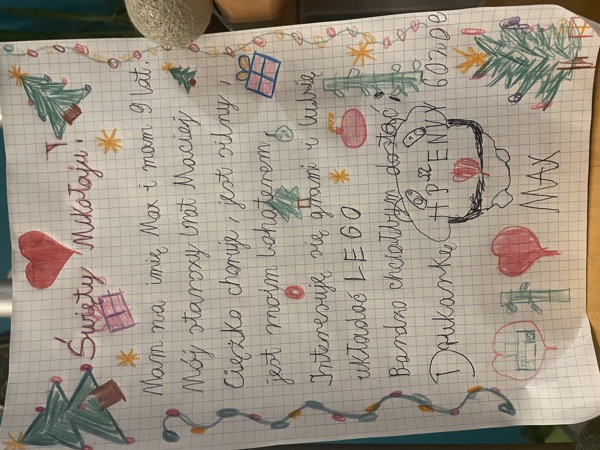 Święty Mikołaju!
Mam na imię Max i mam 9 lat.
Mój starszy brat Maciej
Ciężko choruje, jest silny,
jest moim bohaterem,
Interesuję się grami i lubię
układać LEGO
Bardzo chciałbym dostać:
Drukarkę HP ENVY 6020e
MAX